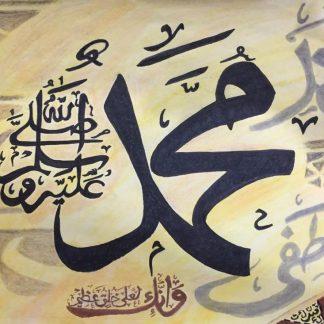 محمد
صلى الله عليه وسلم
وإنك لعلى خلق عظيم